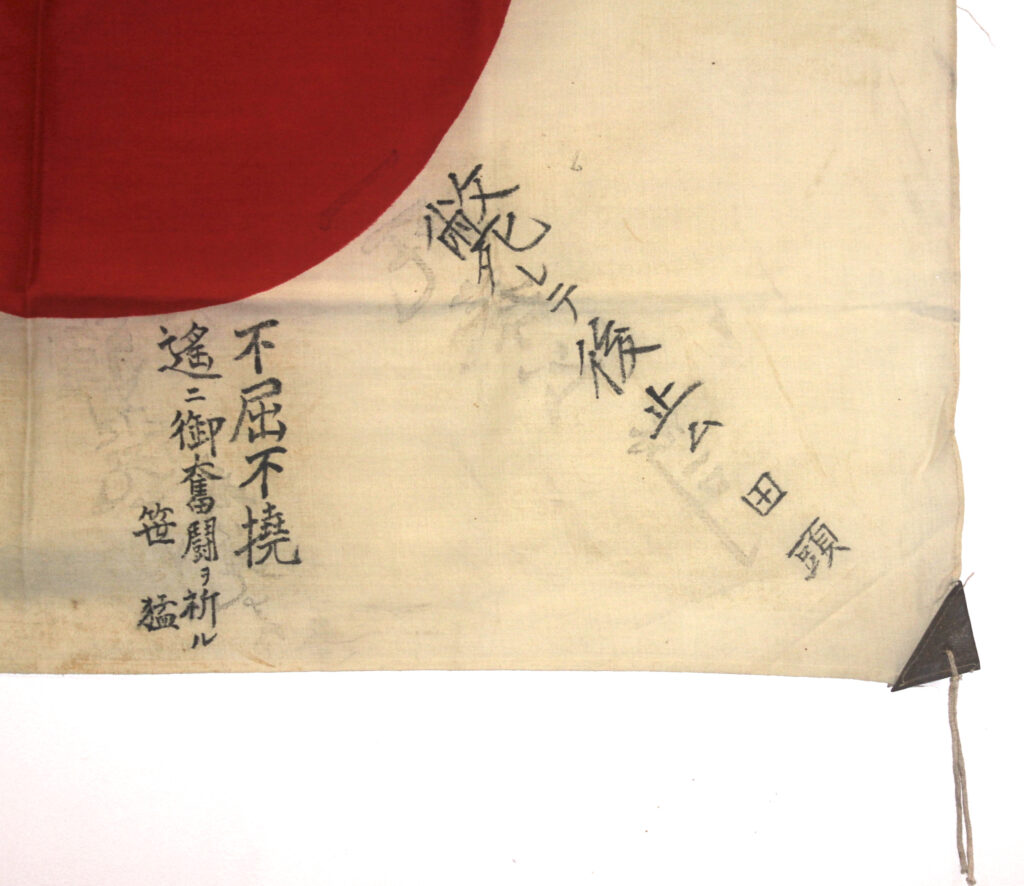 斃レテ後止ム 田頭
不屈不撓
遙ニ御奮闘ヲ祈ル
笹 猛